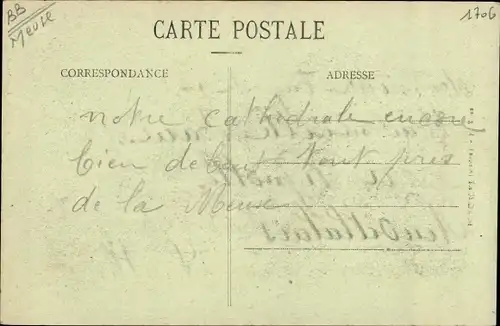 BB
Meuse
1706
CARTE POSTALE
CORRESPONDANCE
ADRESSE
notre cathédrale encore
bien debout tout près
de la Meuse